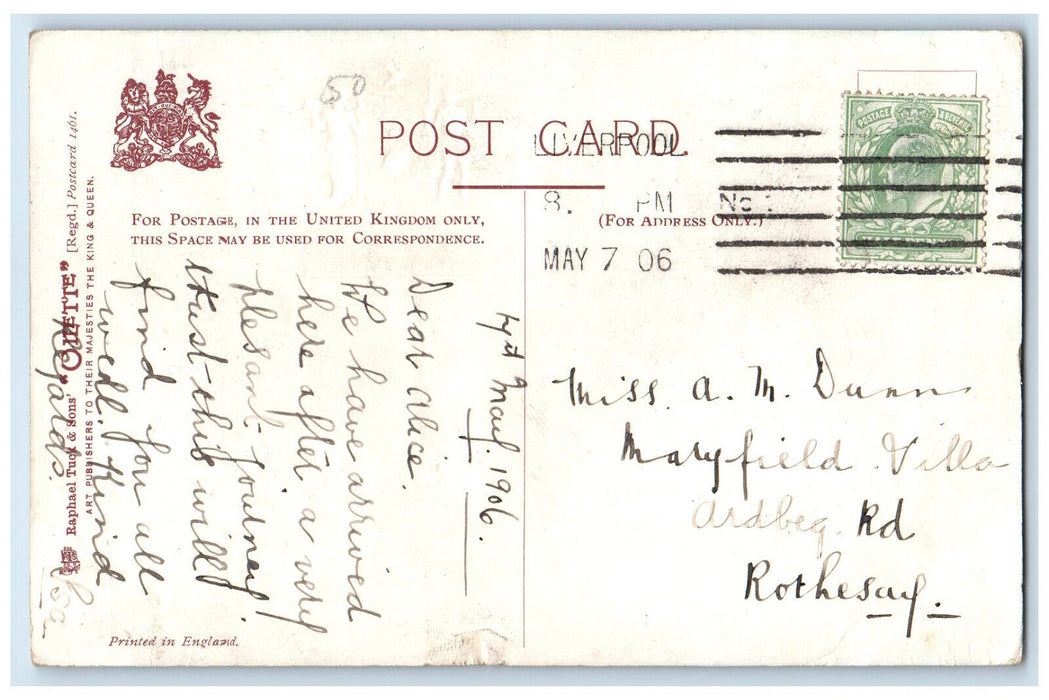 50
POST CARD.
LIVERPOOL
8. PM No
MAY 7 06
POSTAGE REVENUE
FOR POSTAGE, IN THE UNITED KINGDOM ONLY,
THIS SPACE MAY BE USED FOR CORRESPONDENCE.
(FOR ADDRESS ONLY.)
Raphael Tuck & Sons' "OILETTE" [Regd.] Postcard 1461.
ART PUBLISHERS TO THEIR MAJESTIES THE KING & QUEEN.
1906.
Dear Alice.
We have arrived
here after a very
plesant journey
trust this will
find you all
well. Kind
Regards.
Miss. A. M. Dunn
Maryfield Villa
Ardbeg Rd
Rothesay.
Printed in England.